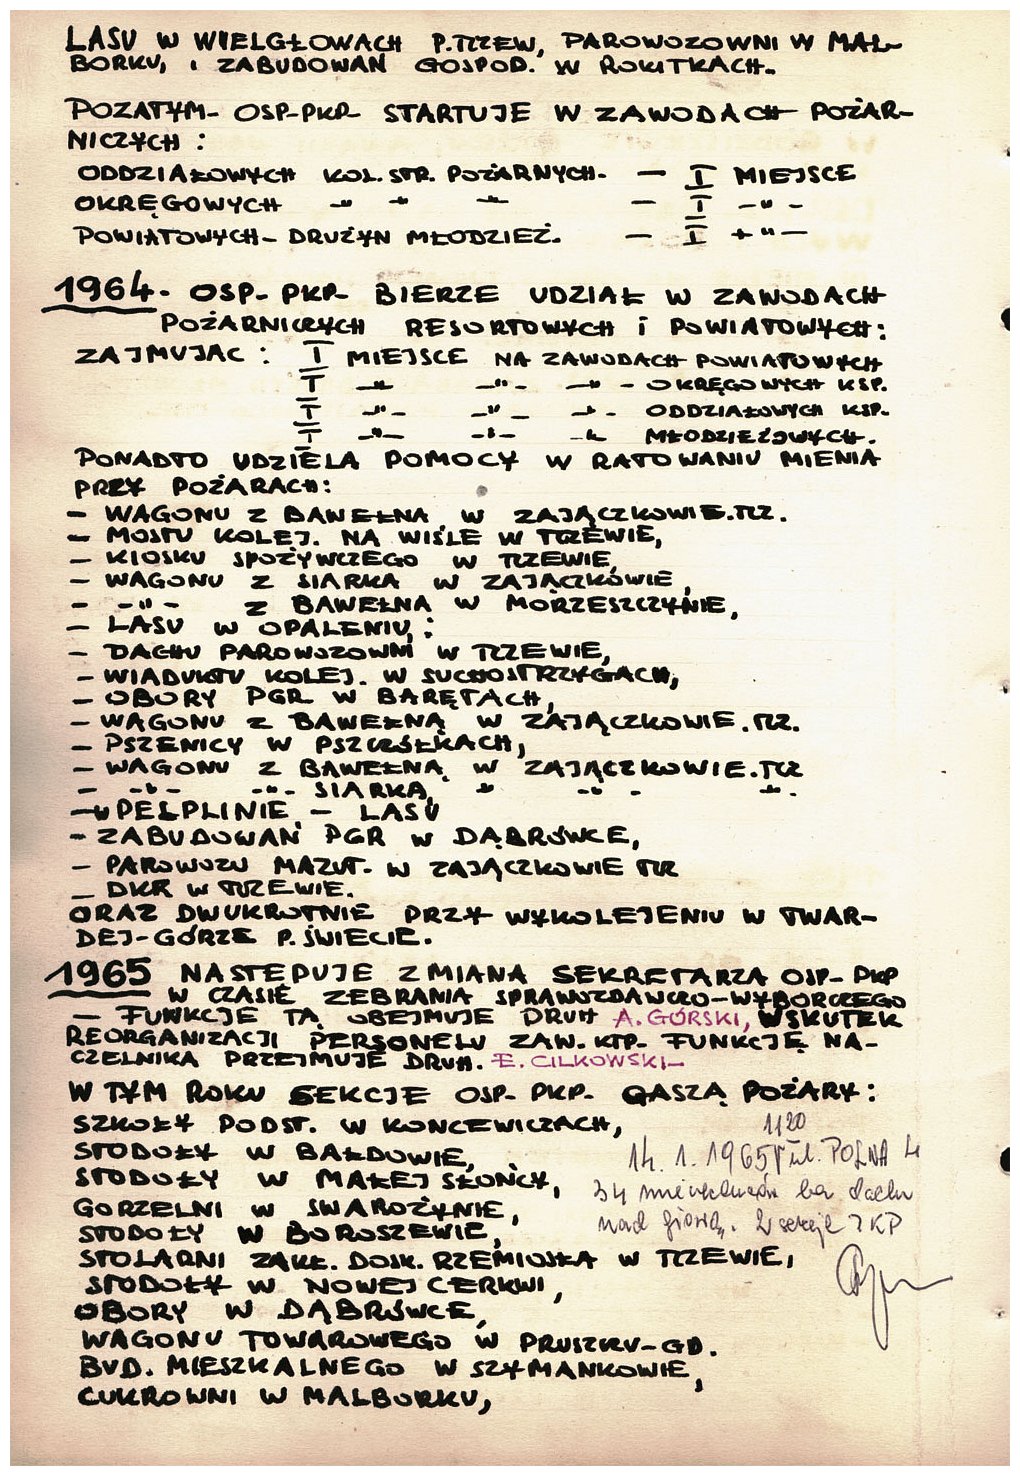 LASU W WIELGŁOWACH P. TCZEW, PAROWOZOWNI W MAL-
BORKU, I ZABUDOWAŃ GOSPOD. W ROKITKACH.
POZATYM- OSP-PKP- STARTUJE W ZAWODACH POŻAR-
NICZYCH :
ODDZIAŁOWYCH KOL. STR. POŻARNYCH. — I MIEJSCE
OKRĘGOWYCH -"- " -"- — I -"-
POWIATOWYCH- DRUŻYN MŁODZIEŻ. — I -"-
1964. OSP- PKP- BIERZE UDZIAŁ W ZAWODACH
POŻARNICZYCH RESORTOWYCH i POWIATOWYCH:
ZAJMUJAC : I MIEJSCE NA ZAWODACH POWIATOWYCH
I -"- -"- -"- - OKRĘGOWYCH KSP.
I -"- -"- -"- ODDZIAŁOWYCH KSP.
I -"- -"- -"- MŁODZIEŻOWYCH.
PONADTO UDZIELA POMOCY W RATOWANIU MIENIA
PRZY POŻARACH:
- WAGONU Z BAWEŁNĄ W ZAJĄCZKOWIE.TCZ.
- MOSTU KOLEJ. NA WIŚLE W TCZEWIE,
- KIOSKU SPOŻYWCZEGO W TCZEWIE,
- WAGONU Z SIARKĄ W ZAJĄCZKOWIE,
- -"- Z BAWEŁNĄ W MORZESZCZYNIE,
- LASU W OPALENIU, :
- DACHU PAROWOZOWNI W TCZEWIE,
- WIADUKTU KOLEJ. W SUCHOSTRZYGACH,
- OBORY PGR W BARĘTACH,
- WAGONU Z BAWEŁNĄ W ZAJĄCZKOWIE. TCZ.
- PSZENICY W PSZCZÓŁKACH,
- WAGONU Z BAWEŁNĄ W ZAJĄCZKOWIE.TCZ
- -"- -"- SIARKĄ, " -"- -"-.
-W PELPLINIE - LASU
- ZABUDOWAŃ PGR W DĄBRÓWCE,
- PAROWOZU MAZUT. W ZAJĄCZKOWIE TCZ
- DKR W TCZEWIE.
ORAZ DWUKROTNIE PRZY WYKOLEJENIU W TWAR-
DEJ-GÓRZE P. ŚWIECIE.
1965 NASTEPUJE ZMIANA SEKRETARZA OSP- PKP
W CZASIE ZEBRANIA SPRAWOZDAWCZO-WYBORCZEGO
- FUNKCJE TĄ OBEJMUJE DRUH A. GÓRSKI, WSKUTEK
REORGANIZACJI PERSONELU ZAW. KTP- FUNKCJĘ NA-
CZELNIKA PRZEJMUJE DRUH. E. CILKOWSKI-
W TYM ROKU SEKCJE OSP- PKP- GASZĄ POŻARY :
SZKOŁY PODST. W KONCEWICZACH,
STODOŁY W BAŁDOWIE,
STODOŁY W MAŁEJ SŁOŃCY,
GORZELNI W SWAROŻYNIE,
STODOŁY W BOROSZEWIE,
STOLARNI ZAKŁ. DOSK. RZEMIOSŁA W TCZEWIE,
STODOŁY W NOWEJ CERKWI,
OBORY W DĄBRÓWCE,
WAGONU TOWAROWEGO W PRUSZCZU-GD.
BUD. MIESZKALNEGO W SZYMANKOWIE,
CUKROWNI W MALBORKU,
1120
14. 1. 1965 r ul. POLNA 4
34 na dachu
nad głową. 2 sekcje PKP